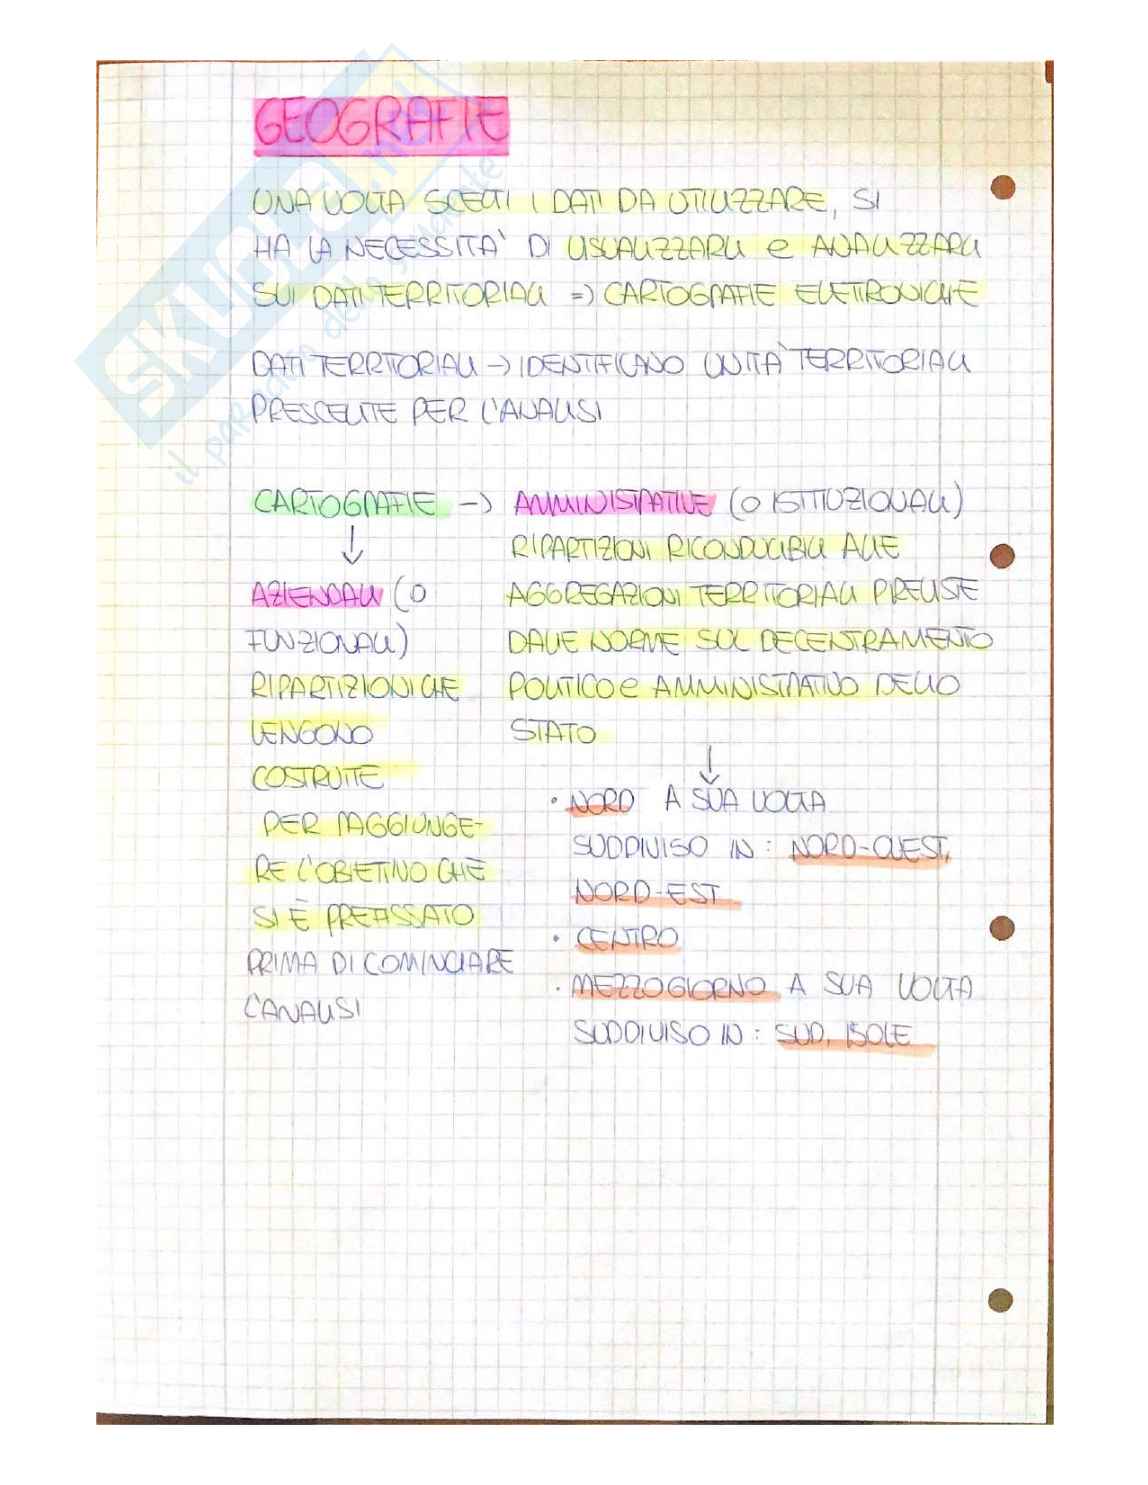 GEOGRAFIE
UNA VOLTA SCELTI I DATI DA UTILIZZARE, SI
HA LA NECESSITA' DI VISUALIZZARLI e ANALIZZARLI
SUI DATI TERRITORIALI => CARTOGRAFIE ELETTRONICHE
DATI TERRITORIALI -> IDENTIFICANO UNITA' TERRITORIALI
PRESCELTE PER L'ANALISI
CARTOGRAFIE -> AMMINISTRATIVE (O ISTITUZIONALI)
RIPARTIZIONI RICONDUCIBILI ALLE
AGGREGAZIONI TERRITORIALI PREVISTE
DALLE NORME SUL DECENTRAMENTO
POLITICO e AMMINISTRATIVO DELLO
STATO
↓
• NORD A SUA VOLTA
SUDDIVISO IN: NORD-OUEST,
NORD-EST
• CENTRO
• MEZZOGIORNO A SUA VOLTA
SUDDIVISO IN: SUD, ISOLE
↓
AZIENDALI (O
FUNZIONALI)
RIPARTIZIONI CHE
VENGONO
COSTRUITE
PER RAGGIUNGE-
RE L'OBIETTIVO CHE
SI È PREFISSATO
PRIMA DI COMINCIARE
L'ANALISI
SKUOLA.net
il paradiso dello studente